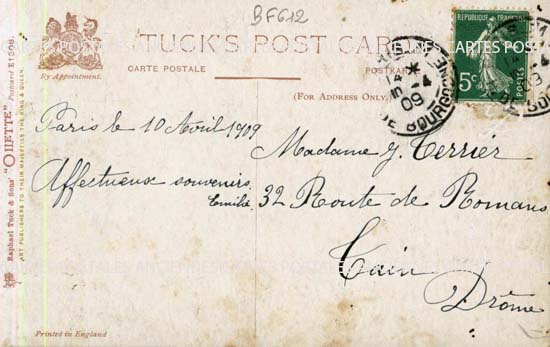 BF612
TUCK'S POST CARD
CARTE POSTALE
POSTKARTE
(FOR ADDRESS ONLY.)
By Appointment.
RÉPUBLIQUE FRANÇAISE
5c
POSTES
09
Raphael Tuck & Sons' "OILETTE" Postcard E1306.
ART PUBLISHERS TO THEIR MAJESTIES THE KING & QUEEN.
Paris le 10 Avril 1909
Affectueux souvenirs
Emile
Madame J. Terrier
32 Route de Romans
Tain
Drôme
Printed in England